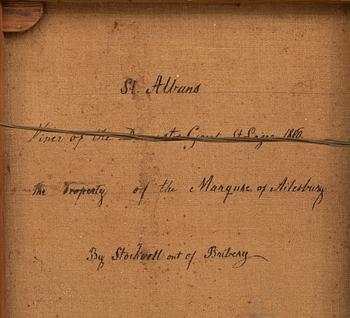 St. Albans
of the Great St Leger 1860
the Property of the Marquse of Ailesbury
By Stockwell out of Bribery